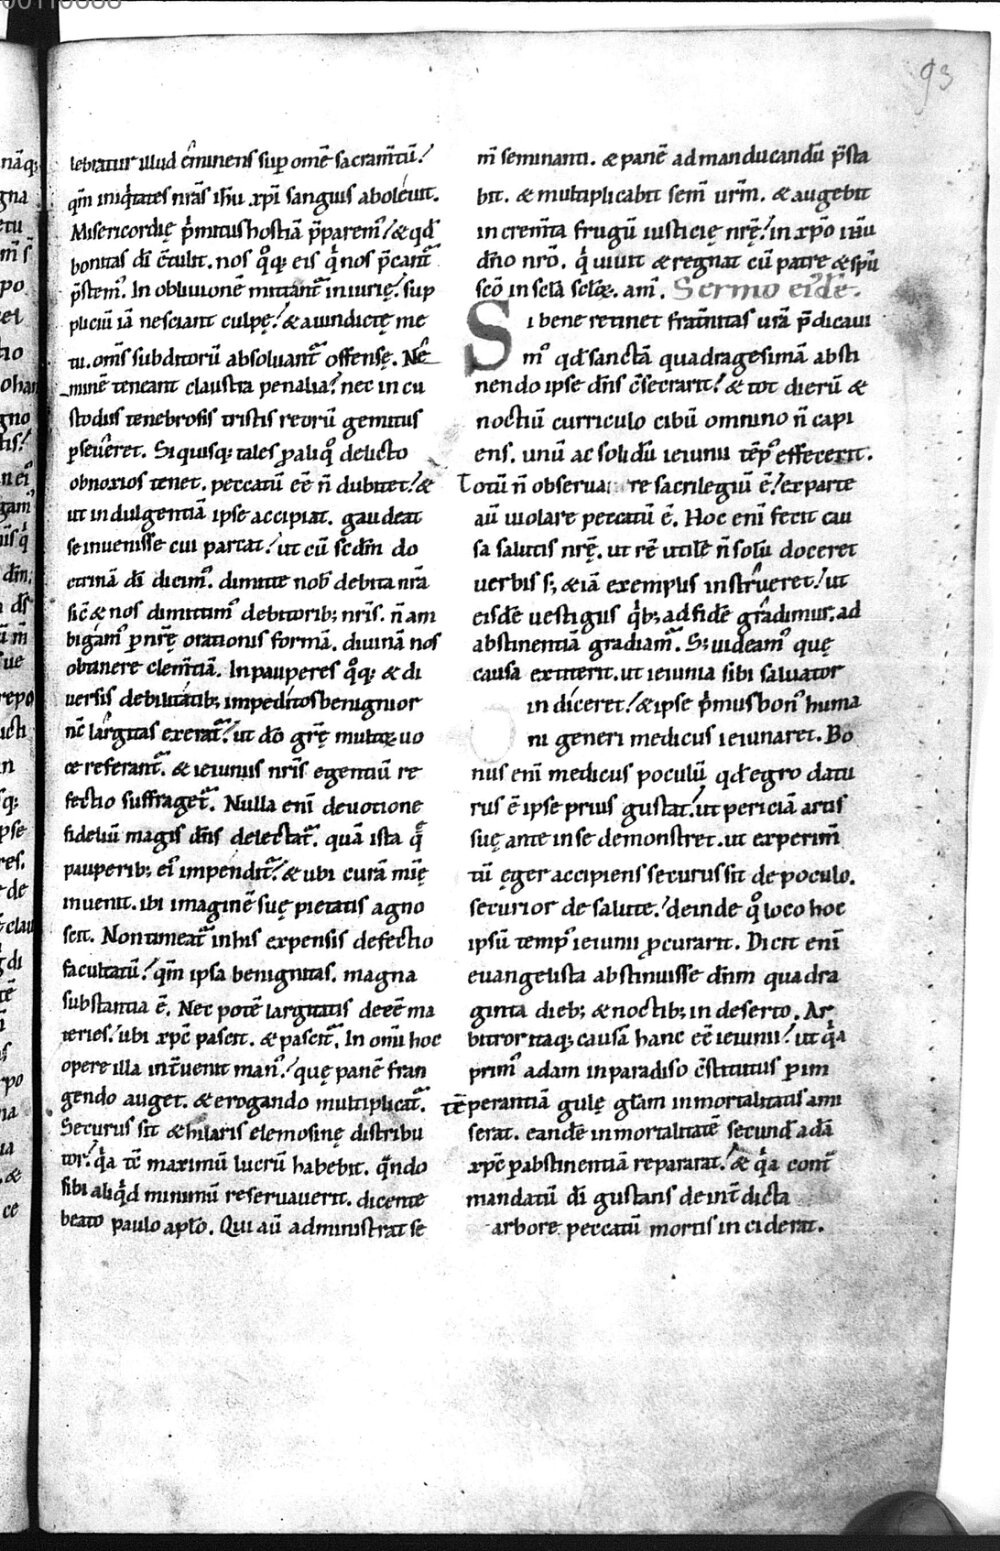 93
lebratur illud c̄minens sup om̄e sacram̄tū!
qm̄ iniq̇tates nr̄as ih̄u xp̄i sanguis aboleuit.
Misericordię p̄mitus hostiā p̄parem᷒! & qd̄
bonitas dī c̄tulit. nos q̊q; eis q̇ nos p̄cant̄
p̄stem᷒. In obliuionē mittant̄ iniurię! sup
pliciū iā nesciant culpę! & a uindictę me
tu. om̄s subditorū absoluant̄ offensę. Ne
minē teneant claustra penalia! nec in cu
stodiis tenebrosis tristis reorū gemitus
pseueret. Siquisq; tales p aliq̊ delicto
obnoxios tenet. peccatū eē n̄ dubitet! &
ut indulgentiā ipse accipiat. gaudeat
se inuenisse cui parcat! ut cū scd̄m do
ctrinā dī dicim᷒. dimitte nob̄ debita nr̄a
sic̄ & nos dimittim᷒ debitorib; nr̄is. n̄ am
bigam᷒ p nr̄ę orationis formā. diuinā nos
obtinere clem̄tiā. In pauperes q̊q; & di
uersis debilitatib; impeditos benignior
nc̄ largitas exerat̄! ut dō gr̄ę multoꝝ uo
ce referant̄. & ieiuniis nr̄is egentiū re
fectio suffraget̄. Nulla enī deuotione
fideliū magis dn̄s delectat̄. quā ista q̄
pauperib; ei᷒ impendit̄! & ubi curā mīę
inuenit. ibi imaginē suę pietatis agno
scit. Non timeat̄ in his expensis defectio
facultatū! qm̄ ipsa benignitas. magna
substantia ē. Nec potē largitatis deeē ma
teries! ubi xp̄c pascit. & pascit̄. In omī hoc
opere illa int̄uenit man᷒! quę panē fran
gendo auget. & erogando multiplicat̄.
Securus sit & hilaris elemosinę distribu
tor! q̇a tē maximū lucrū habebit. q̄ndo
sibi aliq̇d minimū reseruauerit. dicente
beato paulo apl̄o. Qui aū administrat se
m̄ seminanti. & panē ad manducandū p̄sta
bit. & multiplicabit sem̄ urm̄. & augebit
increm̄ta frugū iusticię nr̄ę! in xp̄o ih̄u
dn̄o nr̄o. q̇ uiuit & regnat cū patre & sp̄u
sc̄o in scl̄a scl̄oꝝ. am̄. Sermo eiꝰdē.
Si bene retinet frat̄nitas urā p̄dicaui
m᷒ qd̄ sanctā quadragesimā absti
nendo ipse dn̄s c̄secrarit! & tot dierū &
noctiū curriculo cibū omnino n̄ capi
ens. unū ac solidū ieiunii tēp᷒ effecerit.
Totū n̄ obserua re sacrilegiū ē! ex parte
aū uiolare peccatū ē. Hoc enī fecit cau
sa salutis nr̄ę. ut rē utilē n̄ solū doceret
uerbis s; & iā exemplis instrueret! ut
eisdē uestigiis q̇b; ad fidē gradimur. ad
abstinentiā gradiam̄. S; uideam᷒ quę
causa extiterit. ut ieiunia sibi saluator
indiceret! & ipse p̄mus bon᷒ huma
ni generi medicus ieiunaret. Bo
nus enī medicus poculū qd̄ egro datu
rus ē ipse prius gustat! ut periciā artis
suę ante in se demonstret. ut experim̄
tū ęger accipiens securus sit de poculo.
securior de salute! deinde q̊ loco hoc
ipsū temp᷒ ieiunii pcurarit. Dicit enī
euangelista abstinuisse dn̄m quadra
ginta dieb; & noctib; in deserto. Ar
bitror itaq; causā hanc eē ieiunii! ut q̇a
prim᷒ adam in paradiso c̄stitutus p im
tēperantiā gulę gl̄am inmortalitatis ami
serat. eandē inmortalitatē secund᷒ adā
xp̄c p abstinentiā repararat! & q̇a cont̄
mandatū dī gustans de int̄dicta
arbore peccatū mortis inciderat.